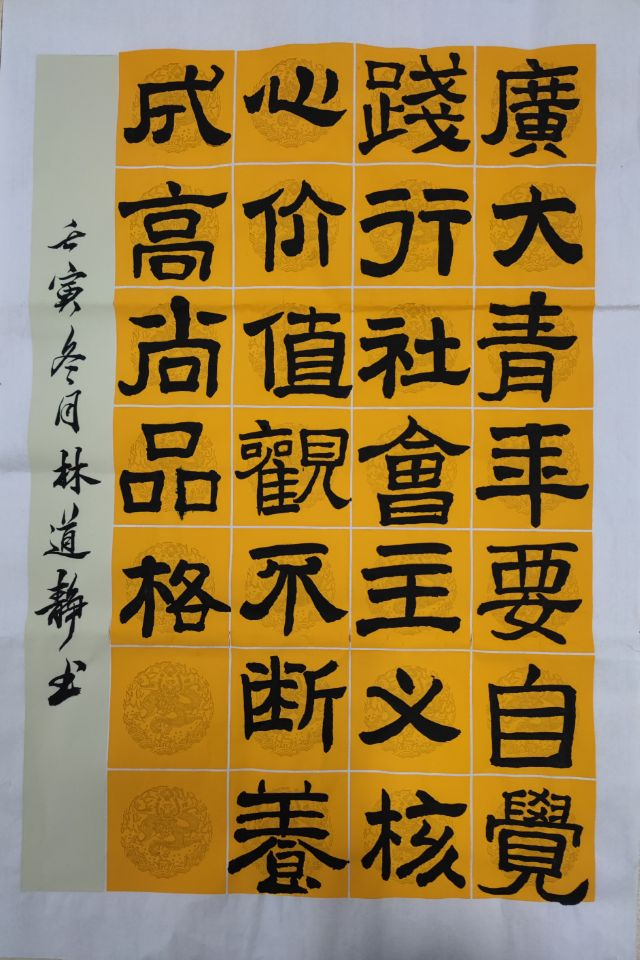 廣大青年要自覺
踐行社會主义核
心价值觀不断養
成高尚品格
壬寅冬月林道靜书